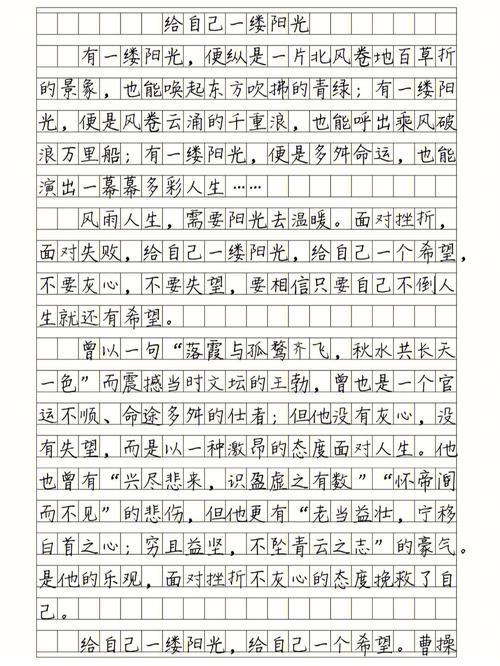 给自己一缕阳光
有一缕阳光，便纵是一片北风卷地百草折
的景象，也能唤起东方吹拂的青绿；有一缕阳
光，便是风卷云涌的千重浪，也能呼出乘风破
浪万里船；有一缕阳光，便是多舛命运，也能
演出一幕幕多彩人生……
风雨人生，需要阳光去温暖。面对挫折，
面对失败，给自己一缕阳光，给自己一个希望，
不要灰心，不要失望，要相信只要自己不倒人
生就还有希望。
曾以一句“落霞与孤鹜齐飞，秋水共长天
一色”而震撼当时文坛的王勃，曾也是一个官
运不顺、命途多舛的仕者；但他没有灰心，没
有失望，而是以一种激昂的态度面对人生。他
也曾有“兴尽悲来，识盈虚之有数”“怀帝阍
而不见”的悲伤，但他更有“老当益壮，宁移
白首之心；穷且益坚，不坠青云之志”的豪气。
是他的乐观，面对挫折不灰心的态度挽救了自
己。
给自己一缕阳光，给自己一个希望。曹操